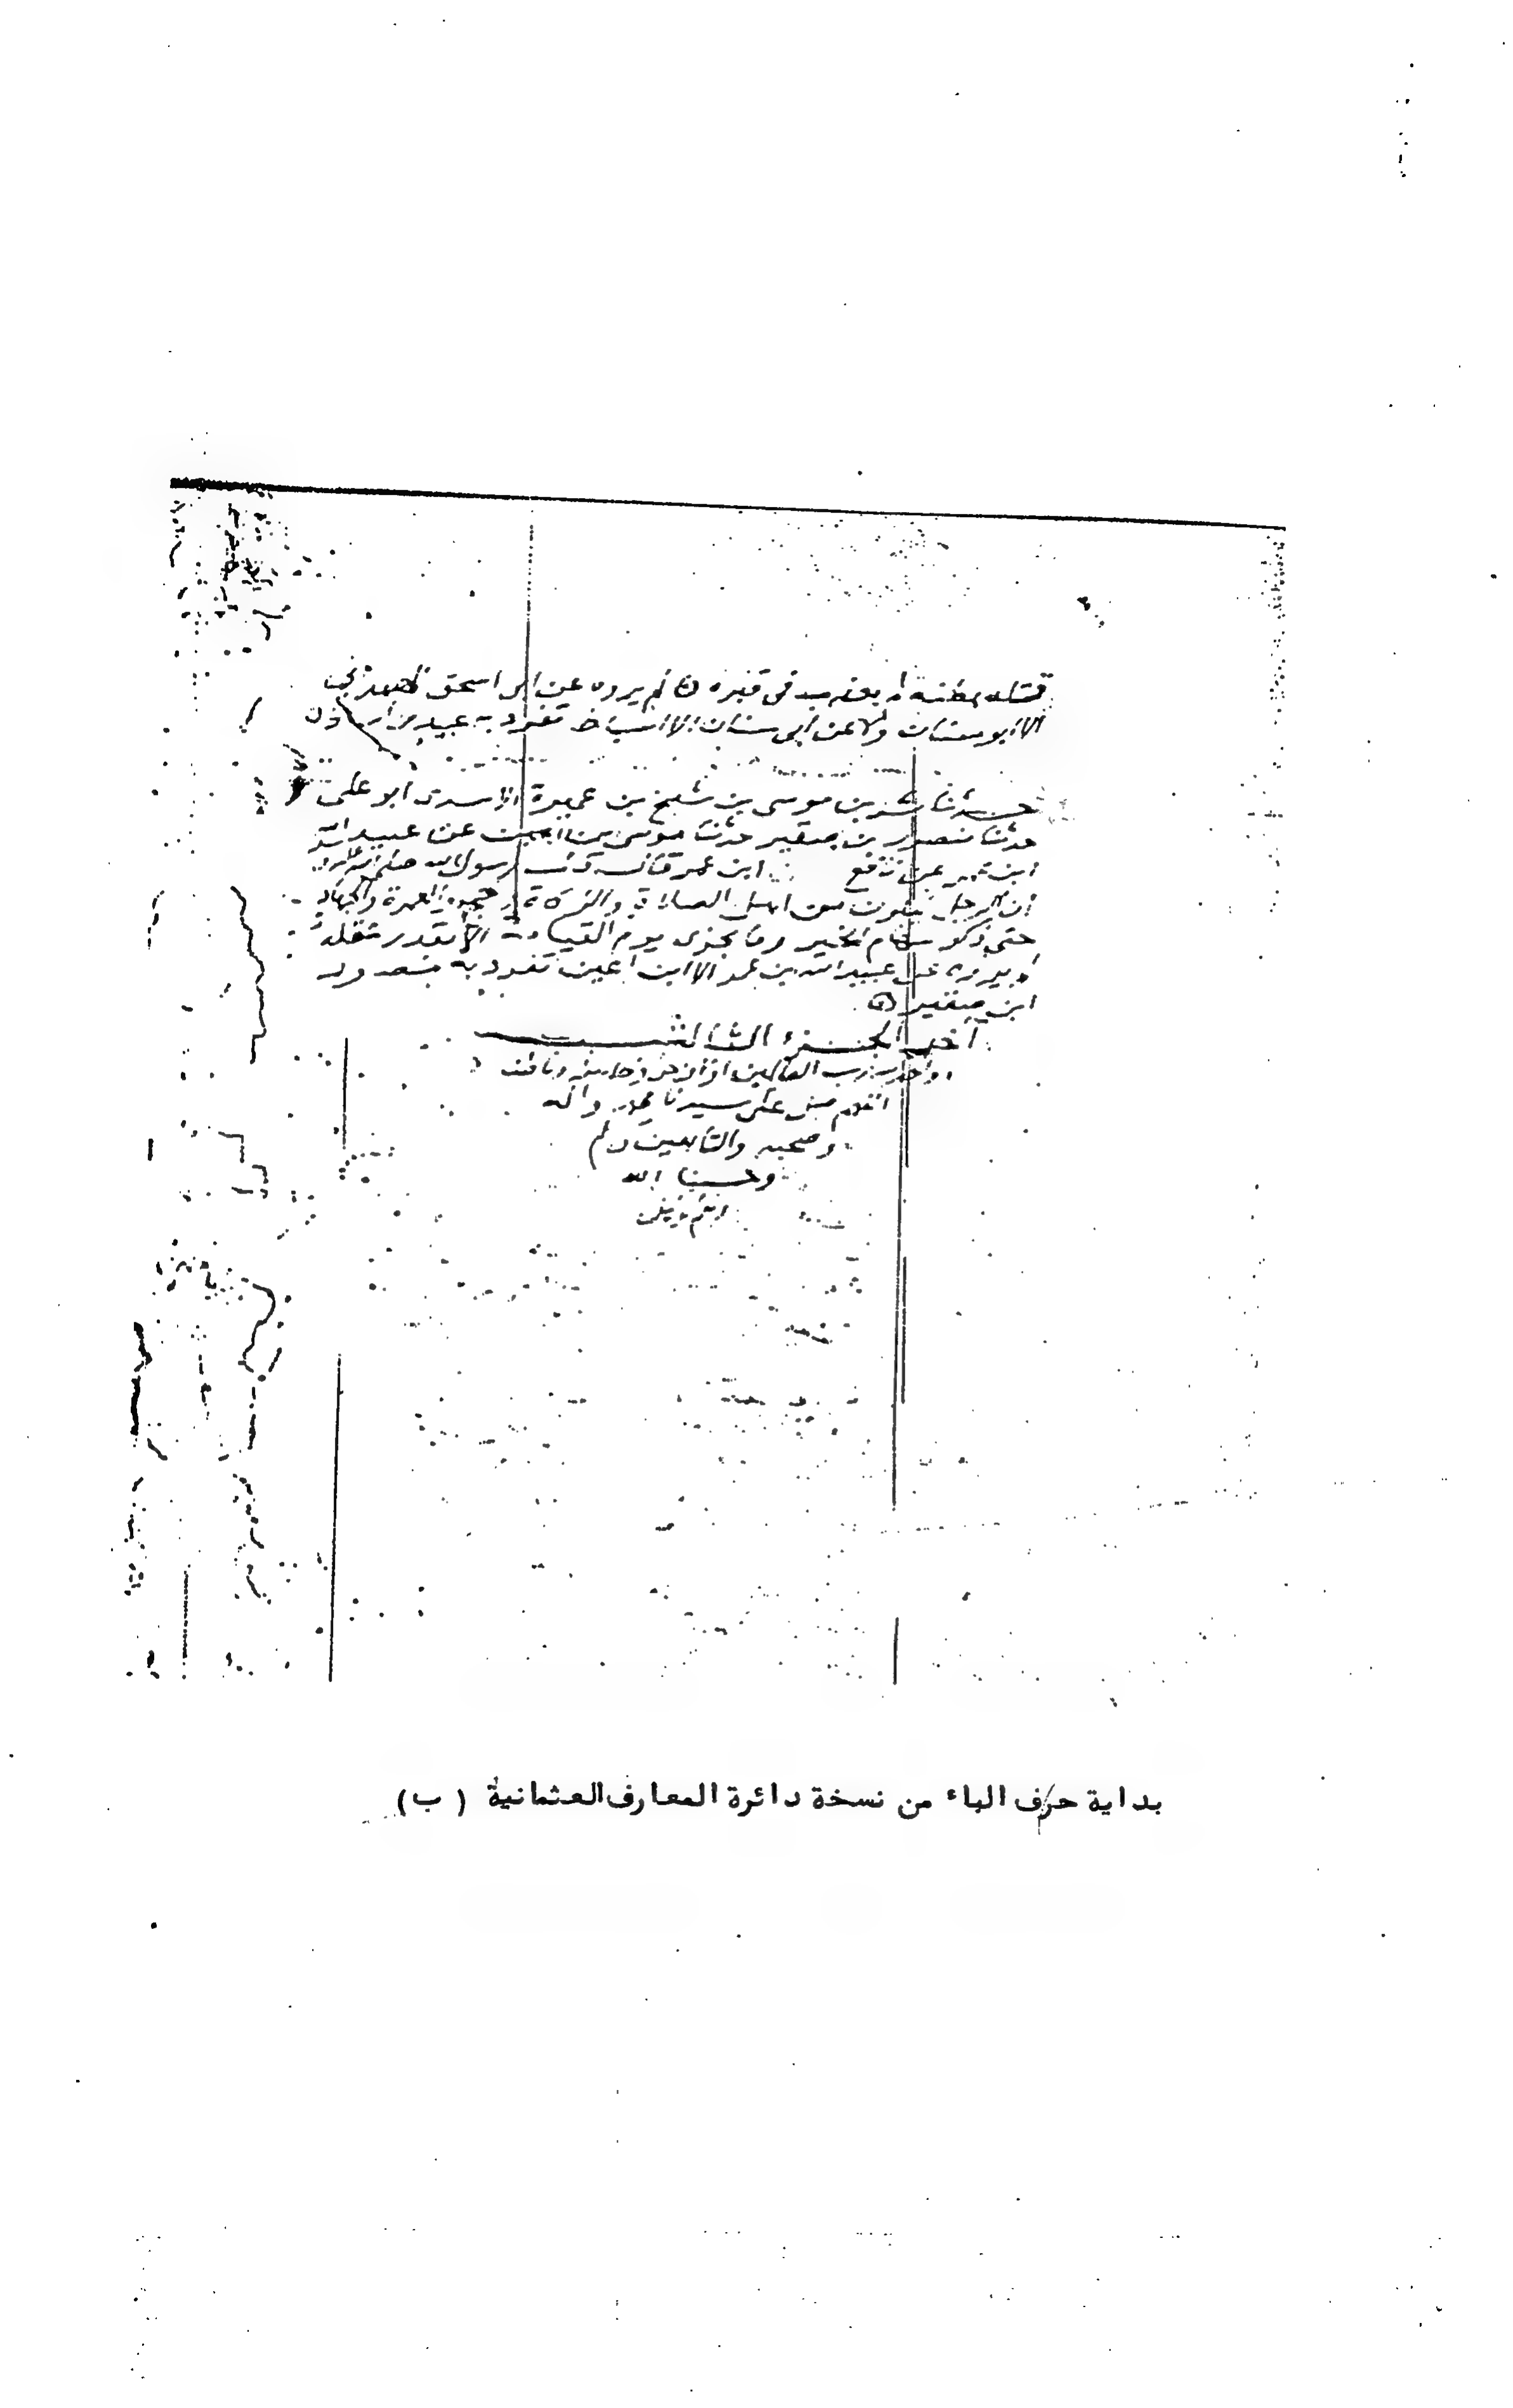 قتله بطنه لم يعذب فى قبره لم يروه عن ابى اسحق
الا ابو سنان ولا عن ابى سنان الا اسباط تفرد به عبيد بن
حدثنا بشر بن موسى بن شيخ بن عميرة الاسدى ابو على
حدثنا منصور بن صقير حدثنا موسى بن اعين عن عبيد الله
ابن عمر عن نافع ابن عمر قال قال رسول الله صلى الله عليه
ان الرجل ليكون من اهل الصلاة والزكاة والعمرة والجهاد
حتى ذكر سهام الخير وما يجزى يوم القيامة الا بقدر عقله
لم يروه عن عبيد الله بن عمر الا ابن اعين تفرد به منصور
ابن صقير
آخر الجزء الثالث
والحمد لله رب العالمين
اللهم صل على سيدنا محمد واله
وصحبه والتابعين
وحسبنا الله
ونعم
بداية حرف الباء من نسخة دائرة المعارف العثمانية ( ب )